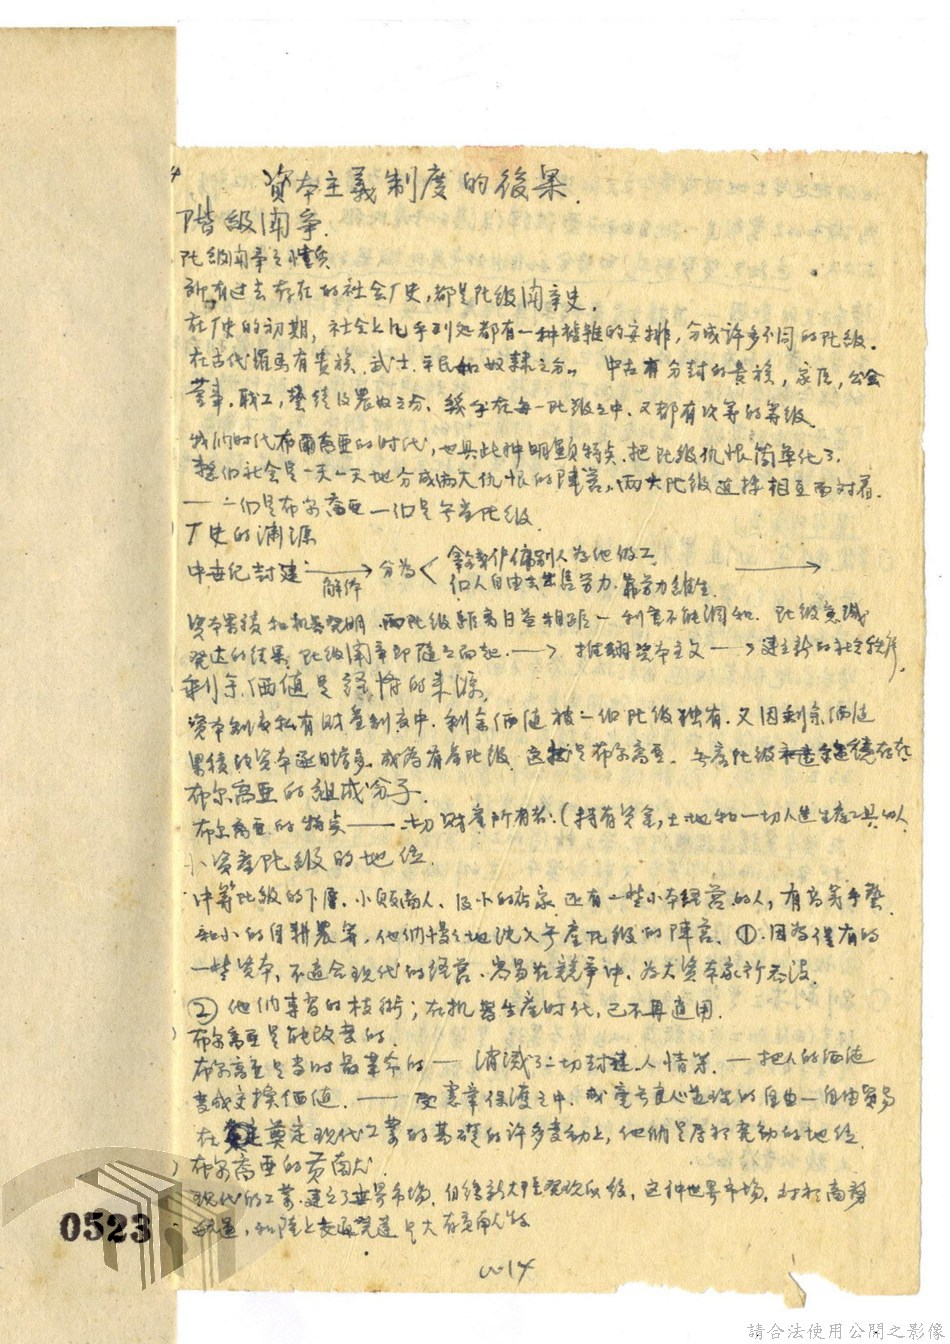 資本主義制度的後果.
階級鬥爭.
阶級鬥争之情勢
所有过去存在的社会厂史,都是阶級鬥爭史.
在厂史的初期, 社会上几乎到处都有一种複雜的安排, 分成许多不同的阶級.
在古代羅馬有貴族、武士、平民和奴隸之分。 中古有分封的貴族, 家臣, 公会
董事、職工, 學徒及農奴之分. 幾乎在每一阶級之中、又都有次等的等級.
我们时代布爾喬亞的时代, 也具此种明顯特点、把阶級仇恨簡單化了.
整個社会是一天一天地分成兩大仇恨的陣营、兩大阶級直接相互面对着.
—— 一個是布尔喬亞 一個是無產阶級.
厂史的淵源
中世纪封建 解体 分為 僱別人為他做工
個人自由去出售劳力. 靠劳力維生.
資本累積和机器發明. 兩阶級距离日益 利害不能調和. 阶級意識
發达的結果 阶級鬥争即隨之而起. —> 推翻資本主义 —> 建立新的社会秩序
剩余價值是 的來源.
資本制度私有財產制度中. 剩余價值被一個阶級独有. 又因剩余價值
累積的資本逐日增多. 成為有產阶級. 這就是布尔喬亞. 無產阶級 存在
布尔喬亞的組成分子.
布尔喬亞的特点 —— 一切財產所有者. (持有资金, 土地和一切人造生產工具的人
小資產阶級的地位.
中等阶級的下层. 小販商人. 及小的店家 还有一些小本經营的人, 有高等手藝
和小的自耕農等, 他们慢慢地沈入無產阶級的陣营. ① 因為僅有的
一些資本, 不適合现代的經营. 容易在競争中. 為大資本家所吞没.
② 他们專習的技術; 在机器生產时代, 已不再適用.
布尔喬亞是能改變的.
布尔喬亞是当时最革命的 — 消滅了一切封建人情等. — 把人的價值
變成交換價值. —— 憲章保護之中. 成毫無良心 的自由 — 自由貿易
在 奠定现代工業的基礎的许多变动上, 他们是居於発動的地位.
布尔喬亞的贡献
现代的工業. 建立了世界市场. 但 新大陸発现以後, 这种世界市场. 对於商務
航运, 和陸上交通発達是大有贡献的
0523
請合法使用公開之影像